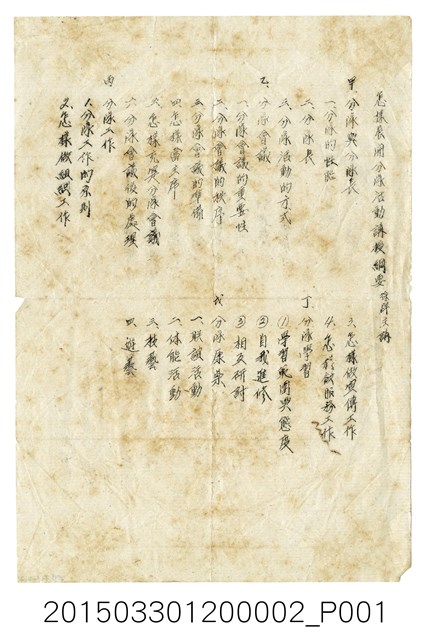 怎樣展開分隊活動講授綱要 徐醒支講
甲、分隊與分隊長
一、分隊的性臨
二、分隊長
三、分隊活動的方式
乙、分隊會議
一、分隊會議的重要性
二、分隊會議的秩序
三、分隊會議的準備
四、怎樣當主席
五、怎樣充實分隊會議
六、分隊會議後的處理
丙 分隊工作
1、分隊工作的原則
2、怎樣做組織工作
3、怎樣做宣傳工作
4、怎樣做服務工作
丁、分隊學習
①學習範圍與態度
②自我進修
③相互研討
戊 分隊康樂
一、聯誼活動
二、体能活動
三、技藝
四、遊藝
201503301200002_P001